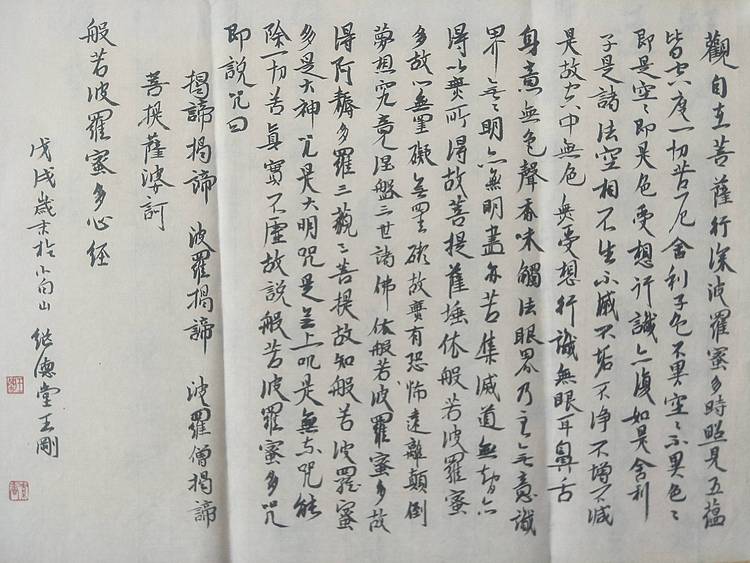 觀自在菩薩行深波羅蜜多時照見五蘊
皆空度一切苦厄舍利子色不異空〻不異色〻
即是空〻即是色受想行識亦復如是舍利
子是諸法空相不生不滅不垢不净不增不減
是故空中無色無受想行識無眼耳鼻舌
身意無色聲香味觸法眼界乃至無意識
界無〻明亦無明盡苦集滅道無智亦
得以無所得故菩提薩埵依般若波羅蜜
多故心無罣礙無罣礙故無有恐怖遠離顛倒
夢想究竟涅盤三世諸佛依般若波羅蜜多故
得阿耨多羅三藐三菩提故知般若波羅蜜
多是大神咒是大明咒是無上咒是無等咒能
除一切苦真實不虛故說般若波羅蜜多咒
即說咒曰
揭諦揭諦 波羅揭諦 波羅僧揭諦
菩提薩婆訶
般若波羅蜜多心經
戊戌歲末於小白山 继德堂王剛